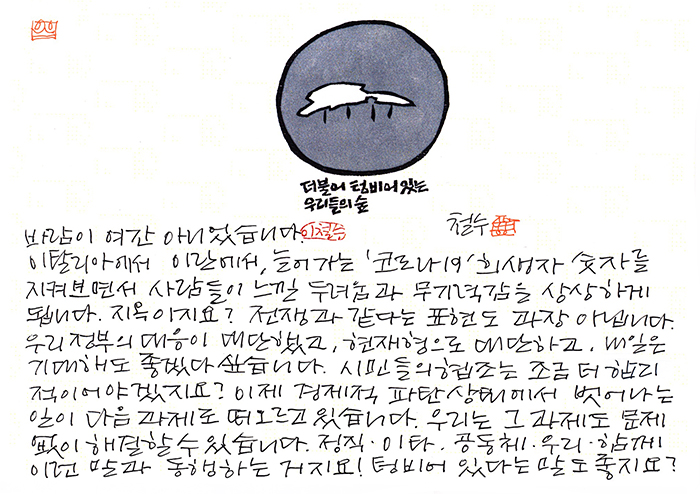 더불어 텅비어있는
우리들의 숲
철수
바람이 여간 아니었습니다. 이철수
이탈리아에서 이란에서, 늘어가는 '코로나19' 희생자 숫자를
지켜보면서 사람들이 느낄 두려움과 무기력감을 상상하게
됩니다. 지옥이지요? 전쟁과 같다는 표현도 과장 아닙니다.
우리 정부의 대응이 대단했고, 현재형으로 대단하고, 내일은
기대해도 좋겠다 싶습니다. 시민들의 협조는 조금 더 합리
적이어야겠지요? 이제 경제적 파탄상태에서 벗어나는
일이 다음 과제로 떠오르고 있습니다. 우리는 그 과제도 문제
없이 해결할 수 있습니다. 정직·이타·공동체·우리·함께
이런 말과 동행하는 거지요! 텅비어 있다는 말도 좋지요?